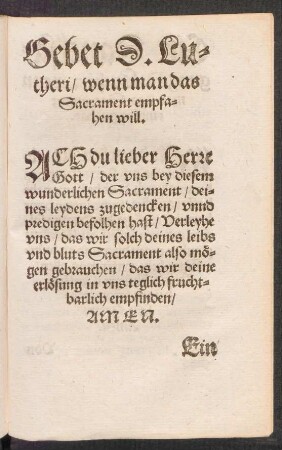 Gebet D. Lu-
theri / wenn man das
Sacrament empfa-
hen will.
ACH du lieber Herre
Gott / der vns bey diesem
wunderlichen Sacrament / dei-
nes leydens zugedencken / vnnd
predigen befolhen hast / Verleyhe
vns / das wir solch deines leibs
vnd bluts Sacrament also mö-
gen gebrauchen / das wir deine
erlösung in vns teglich frucht-
barlich empfinden /
AMEN.
Ein